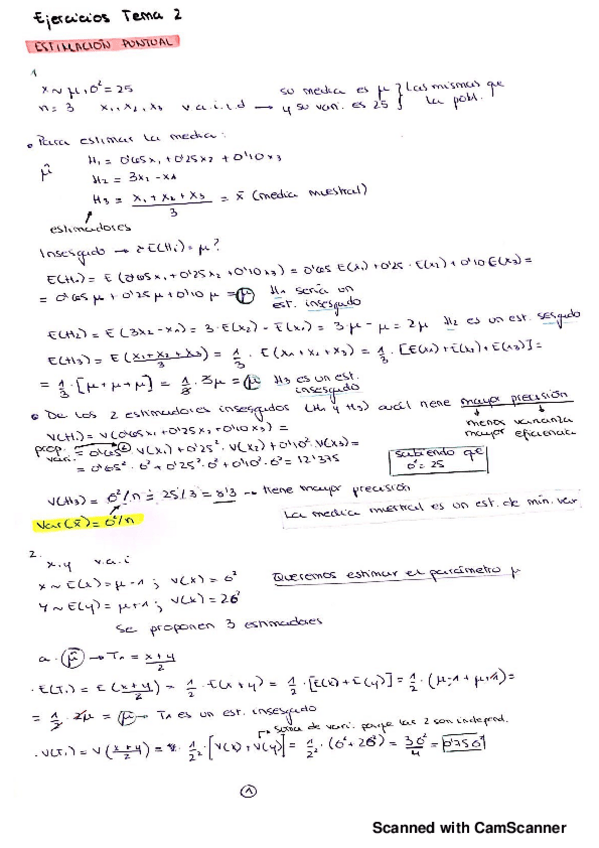 Ejercicios Tema 2
ESTIMACIÓN PUNTUAL
1.
x ~ μ, σ² = 25
su media es μ } Las mismas que
n = 3 x₁, x₂, x₃ v.a.i.d → y su vari. es 25 } la pobl.
• Para estimar la media:
μ̂ H₁ = 0'65x₁ + 0'25x₂ + 0'10x₃
H₂ = 3x₂ - x₁
H₃ = (x₁ + x₂ + x₃)/3 = x̄ (media muestral)
estimadores
Insesgado → ¿E(Hᵢ) = μ?
E(H₁) = E(0'65x₁ + 0'25x₂ + 0'10x₃) = 0'65 E(x₁) + 0'25 · E(x₂) + 0'10 E(x₃) =
= 0'65μ + 0'25μ + 0'10μ = μ H₁ sería un est. insesgado
E(H₂) = E(3x₂ - x₁) = 3·E(x₂) - E(x₁) = 3·μ - μ = 2μ H₂ es un est. sesgado
E(H₃) = E((x₁+x₂+x₃)/3) = 1/3 · E(x₁+x₂+x₃) = 1/3 · [E(x₁)+E(x₂)+E(x₃)] =
= 1/3 · [μ+μ+μ] = 1/3 · 3μ = μ H₃ es un est. insesgado
• De los 2 estimadores insesgados (H₁ y H₃) cuál tiene mayor precisión
menor varianza
mayor eficiencia
V(H₁) = V(0'65x₁ + 0'25x₂ + 0'10x₃) =
prop. vari. = 0'65² V(x₁) + 0'25² · V(x₂) + 0'10² · V(x₃) =
= 0'65² · σ² + 0'25² · σ² + 0'10² · σ² = 12'375
sabiendo que σ² = 25
V(H₃) = σ²/n = 25/3 = 8'3 → tiene mayor precisión
Var(x̄) = σ²/n
La media muestral es un est. de mín. var
2.
x, y v.a.i
x ~ E(x) = μ - 1 ; V(x) = σ²
Queremos estimar el parámetro μ
Y ~ E(y) = μ + 1 ; V(x) = 2σ²
Se proponen 3 estimadores
a. μ̂ → T₁ = (x+y)/2
· E(T₁) = E((x+y)/2) = 1/2 · E(x+y) = 1/2 · [E(x) + E(y)] = 1/2 · (μ-1 + μ+1) =
= 1/2 · 2μ = μ → T₁ es un est. insesgado
suma de vari. porque las 2 son independ.
· V(T₁) = V((x+y)/2) = 1/2² · [V(x) + V(y)] = 1/2² · (σ² + 2σ²) = 3σ²/4 = 0'75σ²
1
Scanned with CamScanner